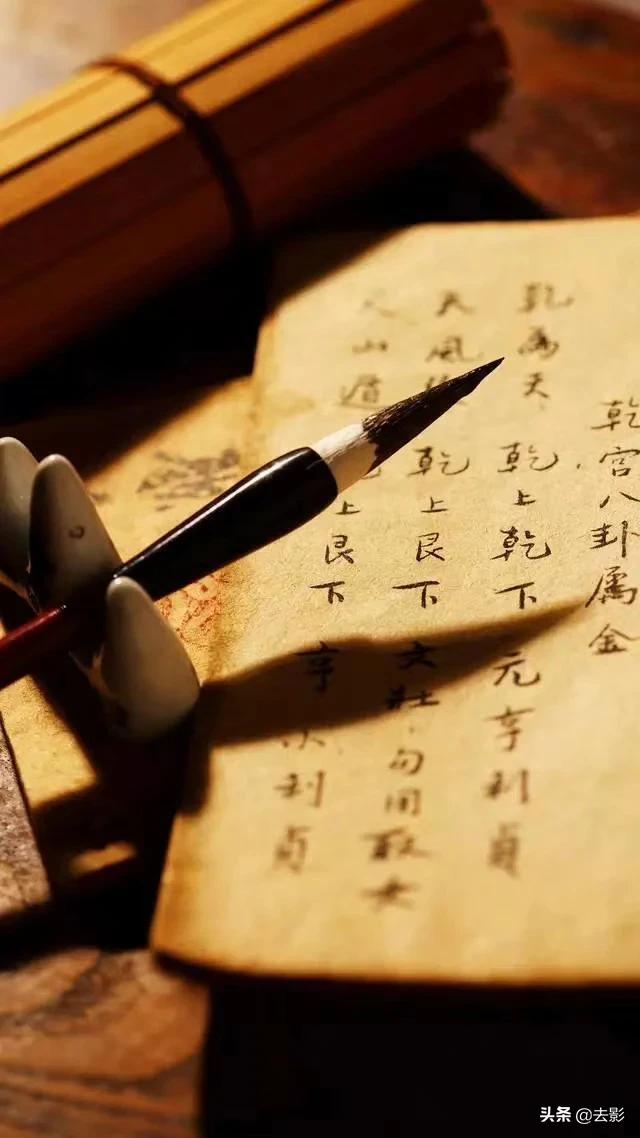 乾宫八卦属金
乾為天 乾上乾下 元亨利貞
天風 乾上艮下 女壯勿用取女
山遁 上艮下 亨小利貞
头条 @去影